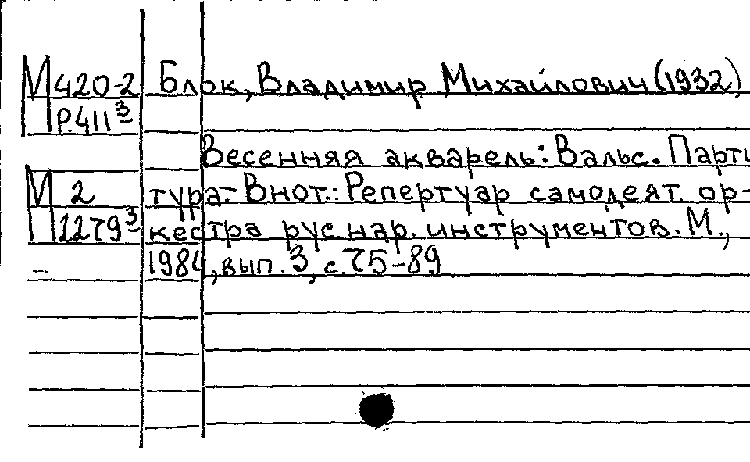 М420-2 Блок, Владимир Михайлович (1932)
Р.411³
Весенняя акварель: Вальс. Парти
М 2 тура.- В нот.: Репертуар самодеят. ор-
П1279³ кестра рус. нар. инструментов. М.,
1984, вып. 3, с. 75-89